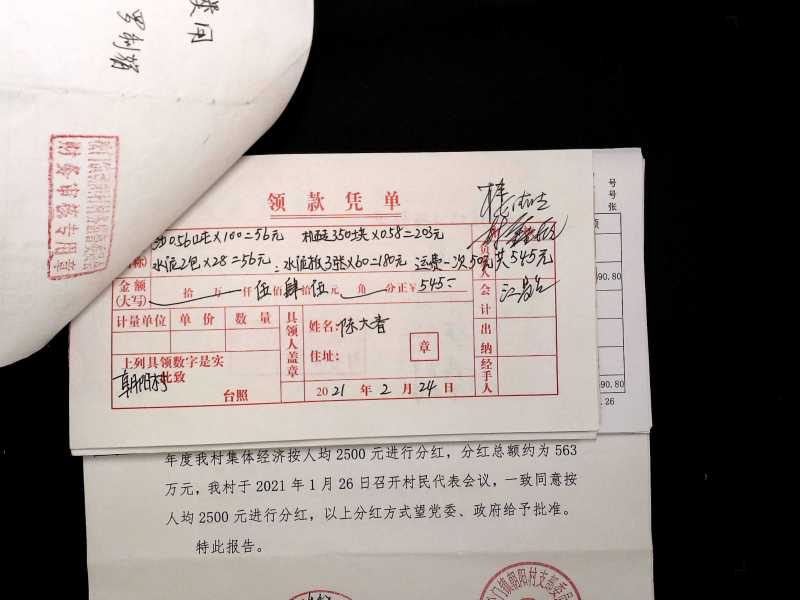 罗制
财务审核专用章
领款凭单
沙0.56吨×100=56元 机砖350块×0.58=203元
称) 水泥2包×28=56元 水泥板3张×60=180元 运费一次50元 共545元
金额(大写) 拾 万 仟 伍佰肆拾伍元 角 分正¥545
会计
计量单位 单价 数量
具领人盖章
姓名: 陈大
住址:
章
出纳
上列具领数字是实
此致
朝阳村
台照
2021年2月24日
经手人
号
号
张
90.80
690.80
.26
年度我村集体经济按人均2500元进行分红,分红总额约为563
万元,我村于2021年1月26日召开村民代表会议,一致同意按
人均2500元进行分红,以上分红方式望党委、政府给予批准。
特此报告。
门镇朝阳村支部委员